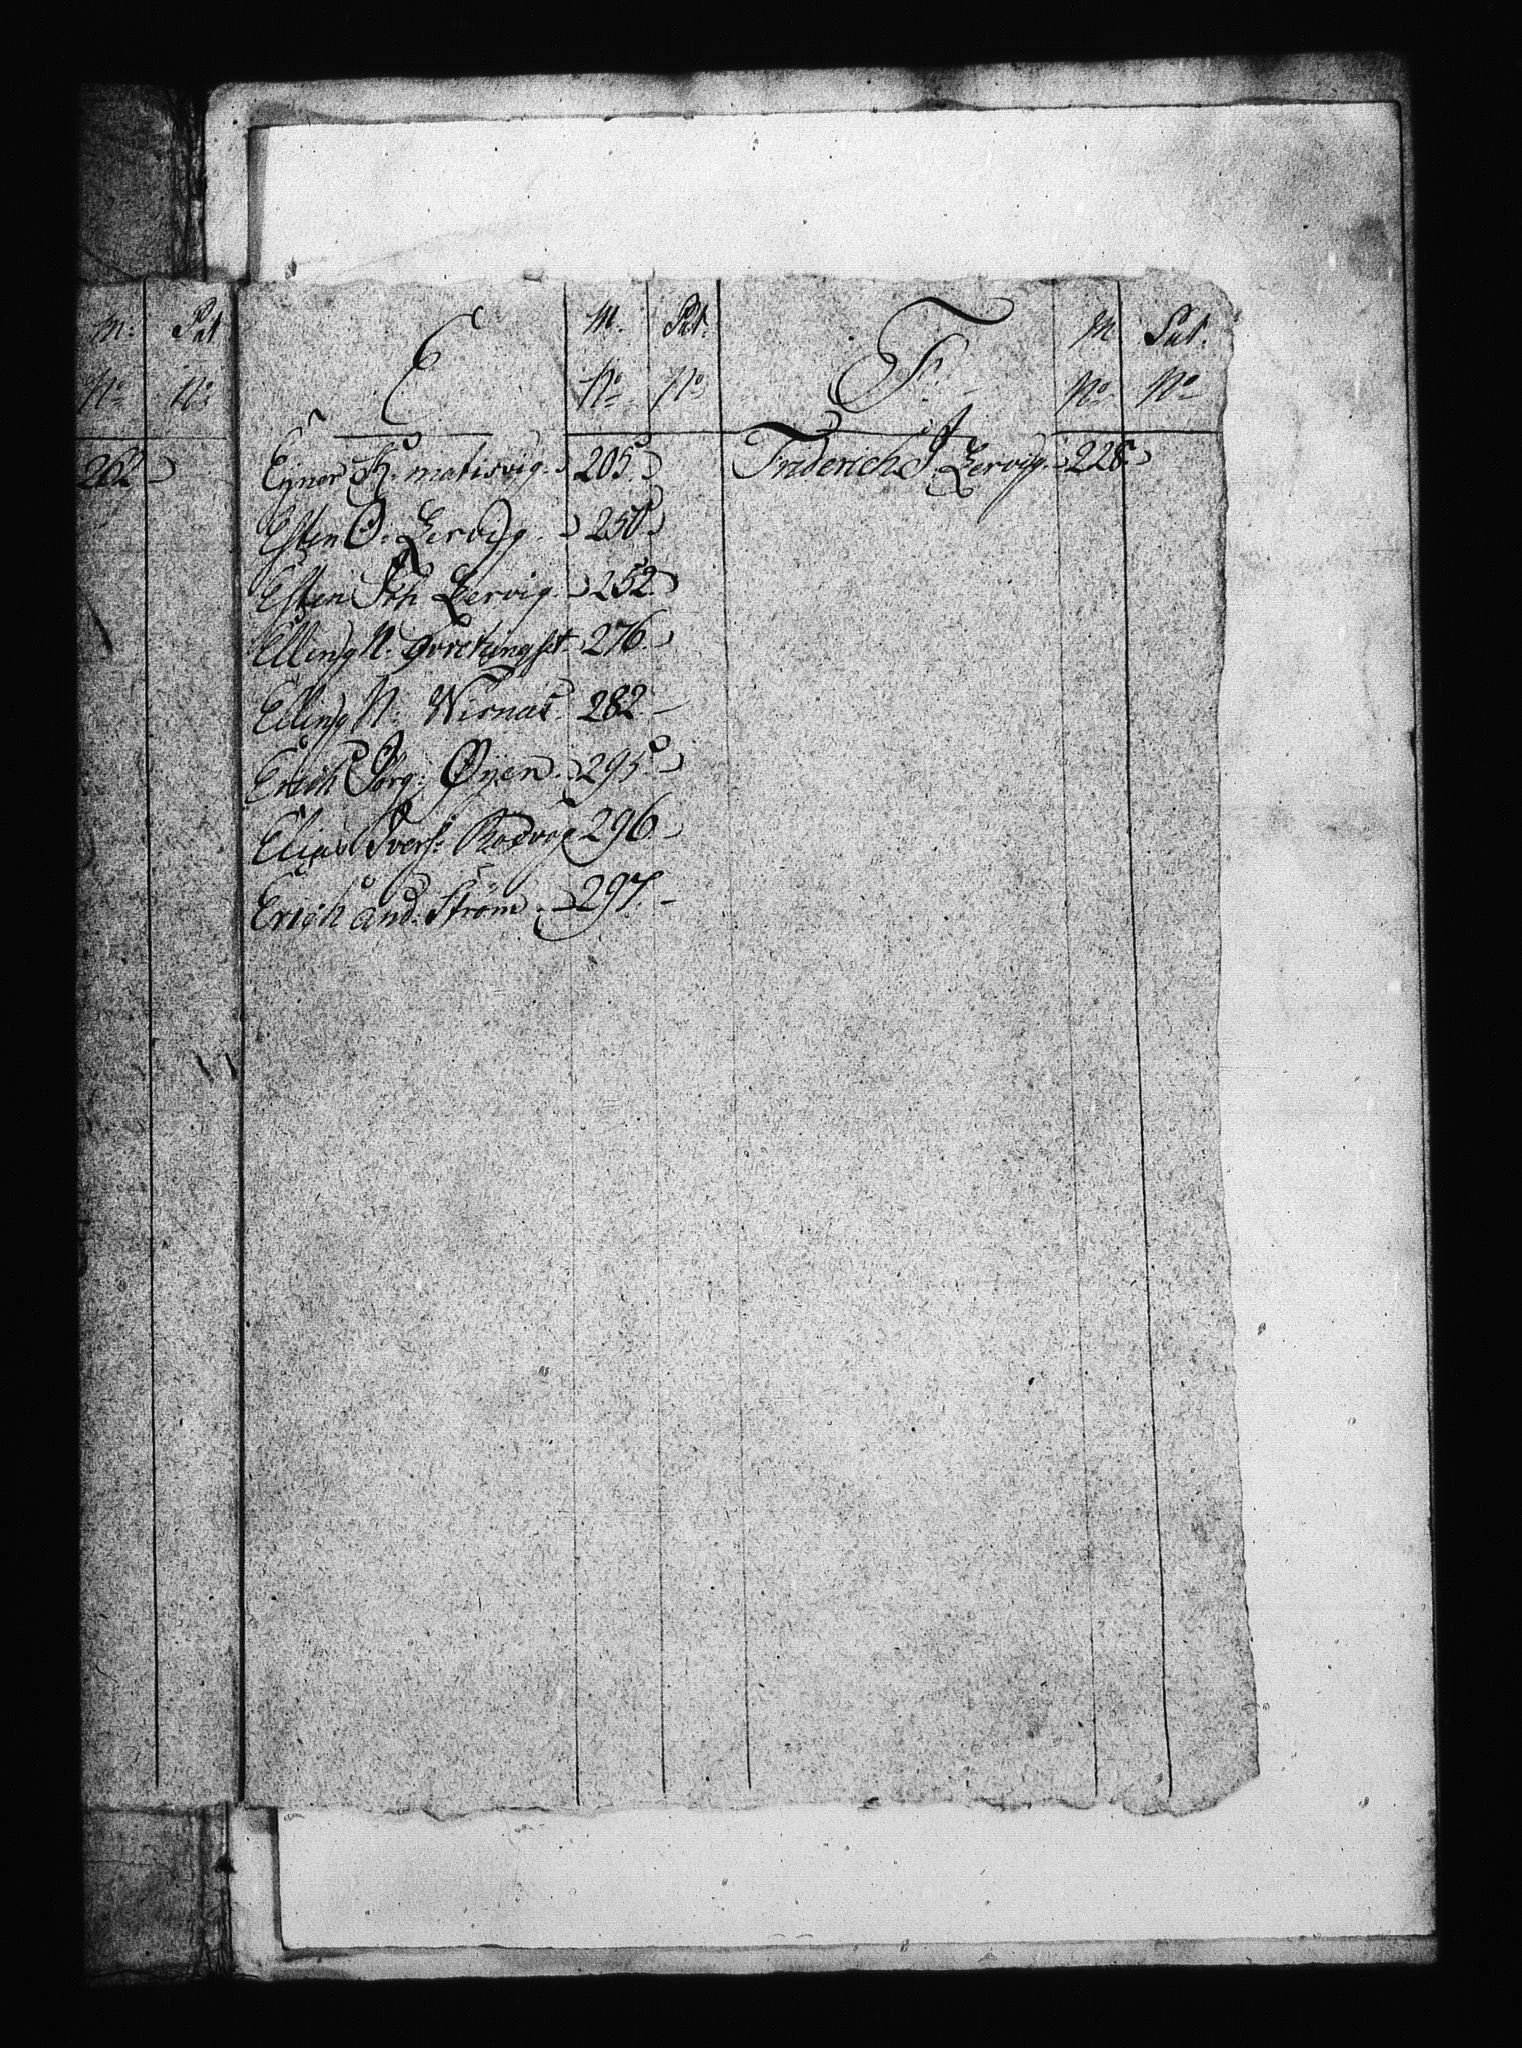 M: Pat
No No
262
E M. Pat.
No No
Ejner K. matisvig. 205.
Esten O. Lervig. 250.
Esten Joh Lervig. 252.
Elling N. 276.
Elling N: Wisnas. 282.
Erich Jörg: Øyen. 295.
Elias Ivers: Rodvog 296.
Erich And. Strøm. 297.
F. M Pat.
No No
Friderich J Lervig. 228.